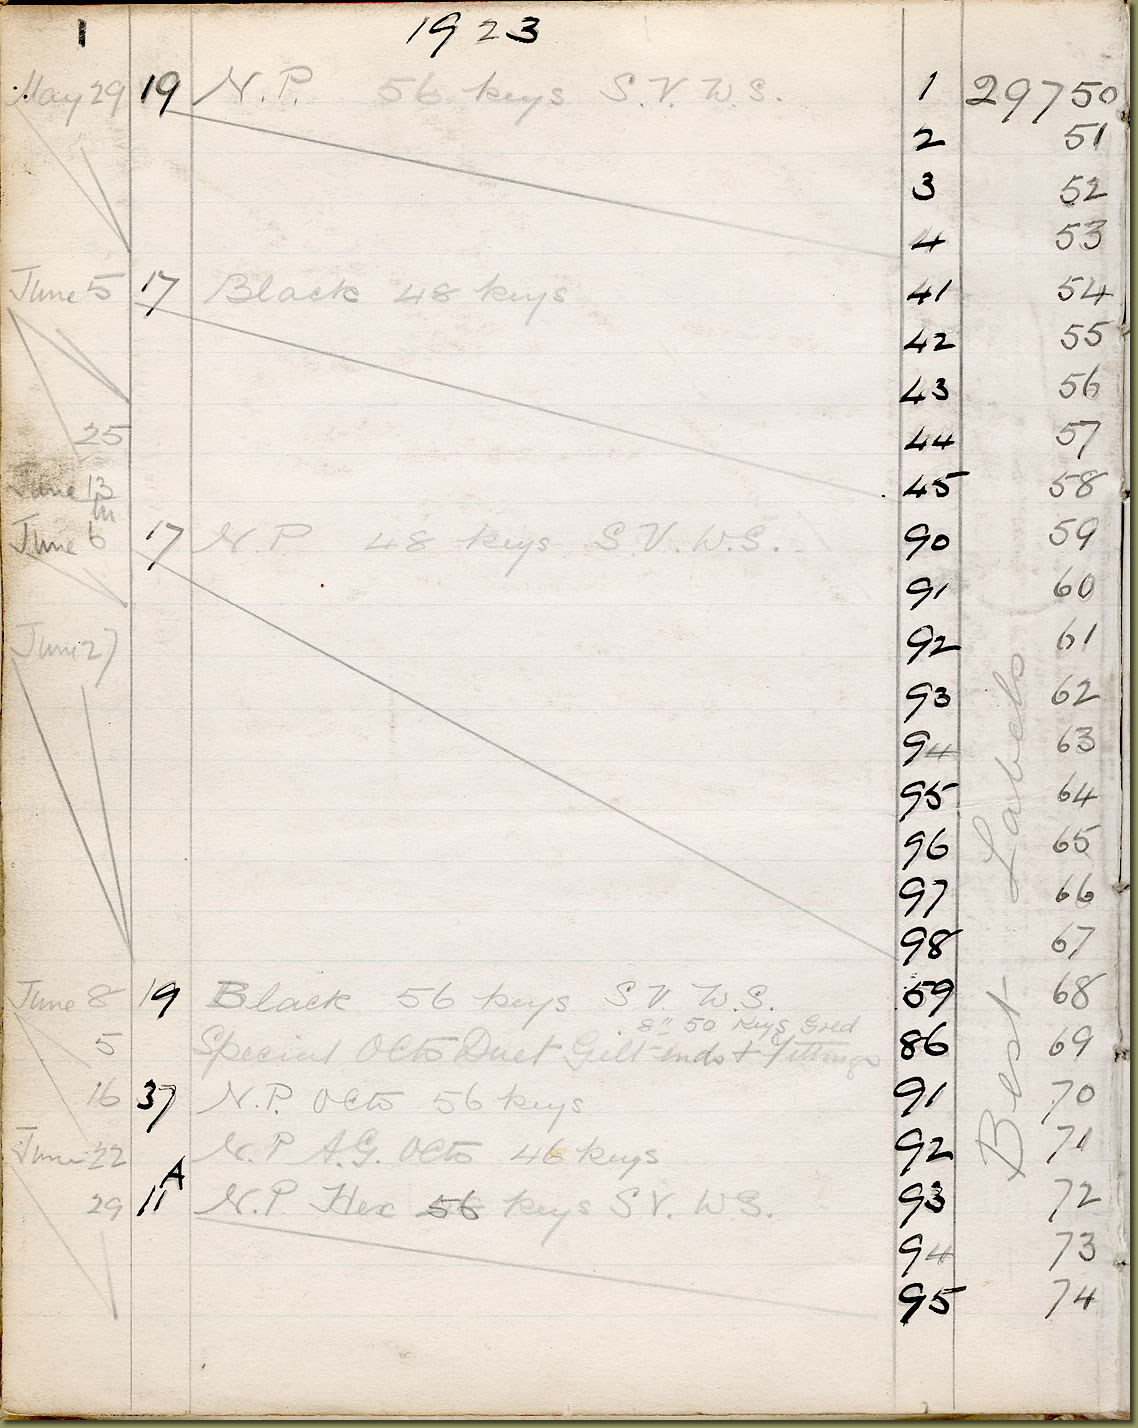 1 1923
May 29 19 N.P. 56 keys S.V. W.S. 1 29750
2 51
3 52
4 53
June 5 17 Black 48 keys 41 54
42 55
43 56
25 44 57
June 13 45 58
June 6 17 N.P 48 keys S.V. W.S. 90 59
91 60
June 27 92 61
93 62
94 63
95 64
96 65
97 66
98 67
June 8 19 Black 56 keys S.V. W.S. 59 68
8" 50 keys Gold
5 Special Octo Duet Gilt ends + fittings 86 69
16 37 N.P. Octo 56 keys 91 70
June 22 N.P A.G. Octo 46 keys 92 71
A
29 11 N.P Hex 56 keys S.V. W.S. 93 72
94 73
95 74
Best Labels